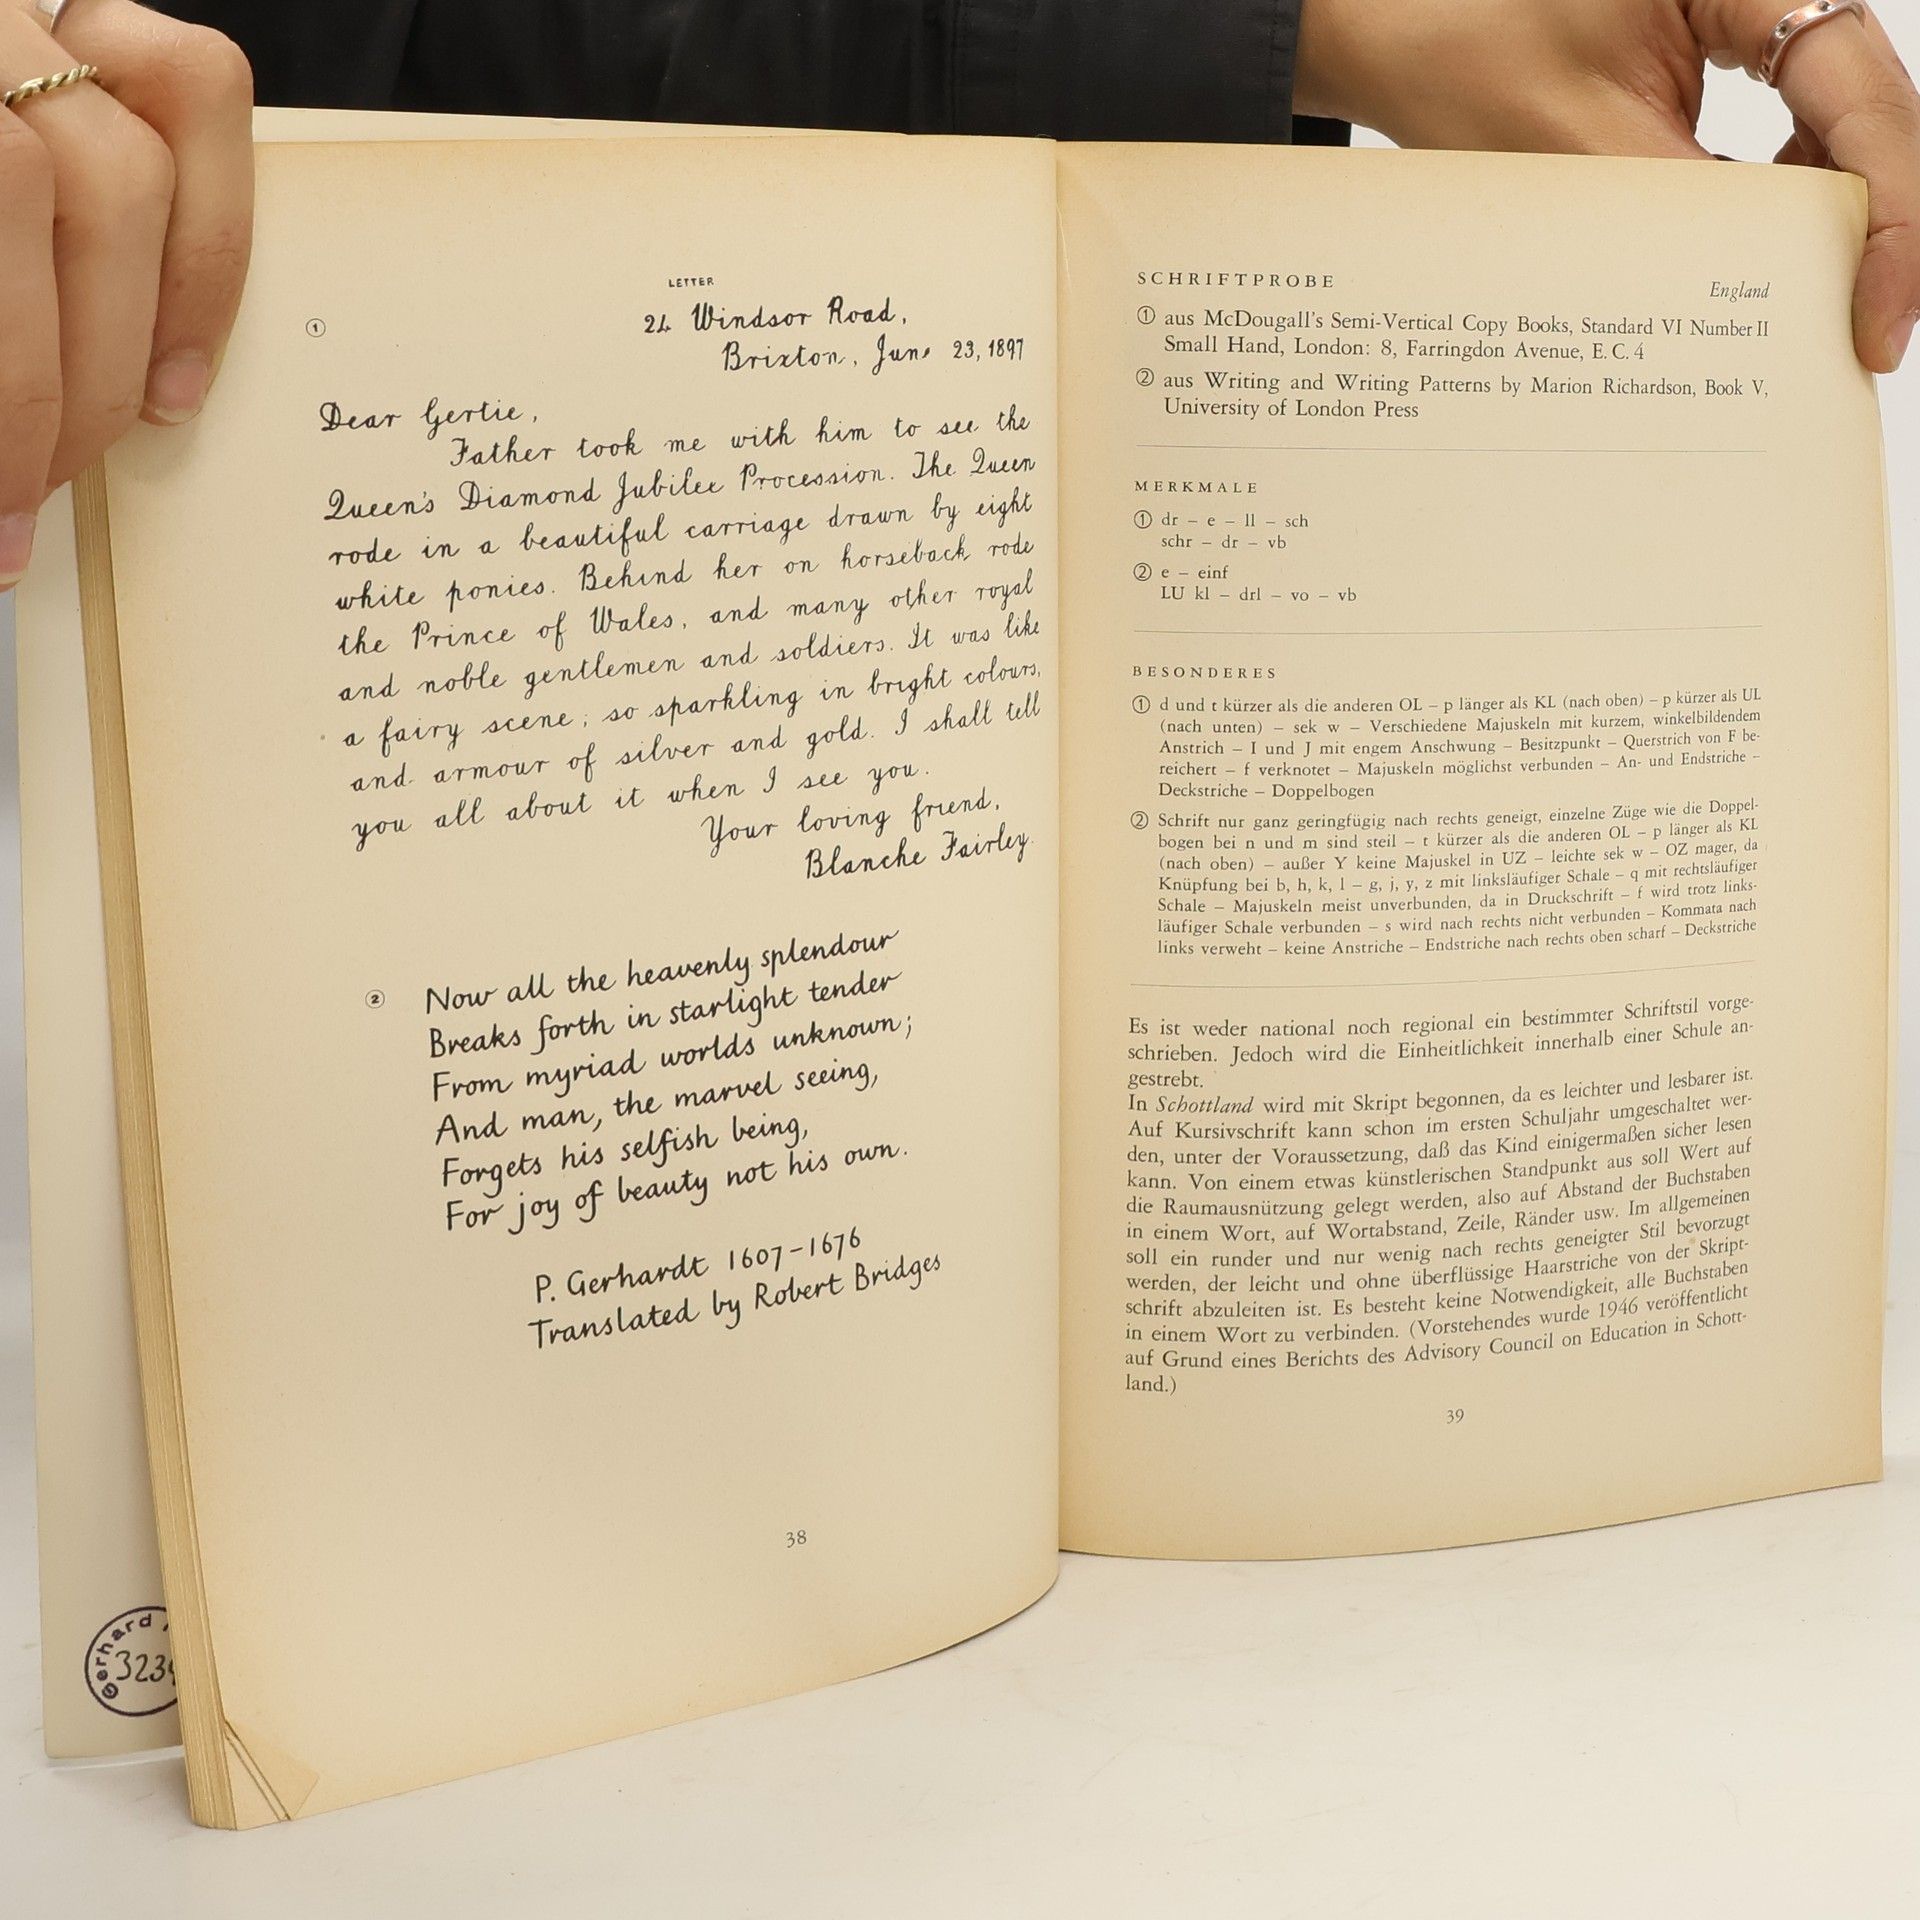 LETTER
①
24 Windsor Road,
Brixton, June 23, 1897
Dear Gertie,
Father took me with him to see the
Queen's Diamond Jubilee Procession. The Queen
rode in a beautiful carriage drawn by eight
white ponies. Behind her on horseback rode
the Prince of Wales, and many other royal
and noble gentlemen and soldiers. It was like
a fairy scene; so sparkling in bright colours,
and armour of silver and gold. I shall tell
you all about it when I see you.
Your loving friend,
Blanche Fairley.
② Now all the heavenly splendour
Breaks forth in starlight tender
From myriad worlds unknown;
And man, the marvel seeing,
Forgets his selfish being,
For joy of beauty not his own.
P. Gerhardt 1607-1676
Translated by Robert Bridges
38
Gerhard
SCHRIFTPROBE
England
① aus McDougall's Semi-Vertical Copy Books, Standard VI Number II
Small Hand, London: 8, Farringdon Avenue, E. C. 4
② aus Writing and Writing Patterns by Marion Richardson, Book V,
University of London Press
MERKMALE
① dr – e – ll – sch
schr – dr – vb
② e – einf
LU kl – drl – vo – vb
BESONDERES
① d und t kürzer als die anderen OL – p länger als KL (nach oben) – p kürzer als UL
(nach unten) – sek w – Verschiedene Majuskeln mit kurzem, winkelbildendem
Anstrich – I und J mit engem Anschwung – Besitzpunkt – Querstrich von F be-
reichert – f verknotet – Majuskeln möglichst verbunden – An- und Endstriche –
Deckstriche – Doppelbogen
② Schrift nur ganz geringfügig nach rechts geneigt, einzelne Züge wie die Doppel-
bogen bei n und m sind steil – t kürzer als die anderen OL – p länger als KL
(nach oben) – außer Y keine Majuskel in UZ – leichte sek w – OZ mager, da
Knüpfung bei b, h, k, l – g, j, y, z mit linksläufiger Schale – q mit rechtsläufiger
Schale – Majuskeln meist unverbunden, da in Druckschrift – f wird trotz links-
läufiger Schale verbunden – s wird nach rechts nicht verbunden – Kommata nach
links verweht – keine Anstriche – Endstriche nach rechts oben scharf – Deckstriche
Es ist weder national noch regional ein bestimmter Schriftstil vorge-
schrieben. Jedoch wird die Einheitlichkeit innerhalb einer Schule an-
gestrebt.
In Schottland wird mit Skript begonnen, da es leichter und lesbarer ist.
Auf Kursivschrift kann schon im ersten Schuljahr umgeschaltet wer-
den, unter der Voraussetzung, daß das Kind einigermaßen sicher lesen
kann. Von einem etwas künstlerischen Standpunkt aus soll Wert auf
die Raumausnützung gelegt werden, also auf Abstand der Buchstaben
in einem Wort, auf Wortabstand, Zeile, Ränder usw. Im allgemeinen
soll ein runder und nur wenig nach rechts geneigter Stil bevorzugt
werden, der leicht und ohne überflüssige Haarstriche von der Skript-
schrift abzuleiten ist. Es besteht keine Notwendigkeit, alle Buchstaben
in einem Wort zu verbinden. (Vorstehendes wurde 1946 veröffentlicht
auf Grund eines Berichts des Advisory Council on Education in Schott-
land.)
39